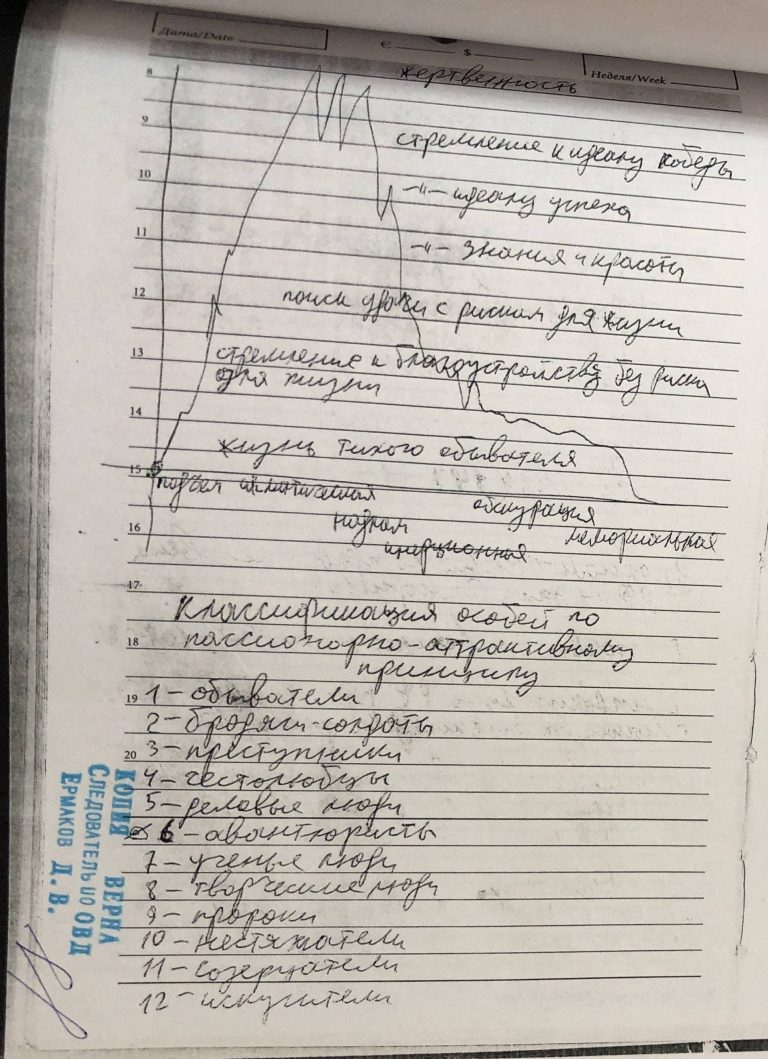 Дата/Date
€ $
Неделя/Week
жертвенность
8
9
стремление к идеалу победы
10
–"– идеалу успеха
11
–"– знания и красоты
12
поиск удачи с риском для жизни
13
стремление к благоустройству без риска
для жизни
14
жизнь тихого обывателя
15
подъем акматическая
надлом
инерционная
обскурация
мемориальная
16
17
классификация особей по
18
пассионарно-аттрактивному
принципу
19
1 – обыватели
2 – бродяги-солдаты
20
3 – преступники
4 – честолюбцы
5 – деловые люди
6 – авантюристы
7 – ученые люди
8 – творческие люди
9 – пророки
10 – нестяжатели
11 – созерцатели
12 – искусители
КОПИЯ ВЕРНА
СЛЕДОВАТЕЛЬ ПО ОВД
ЕРМАКОВ Д. В.